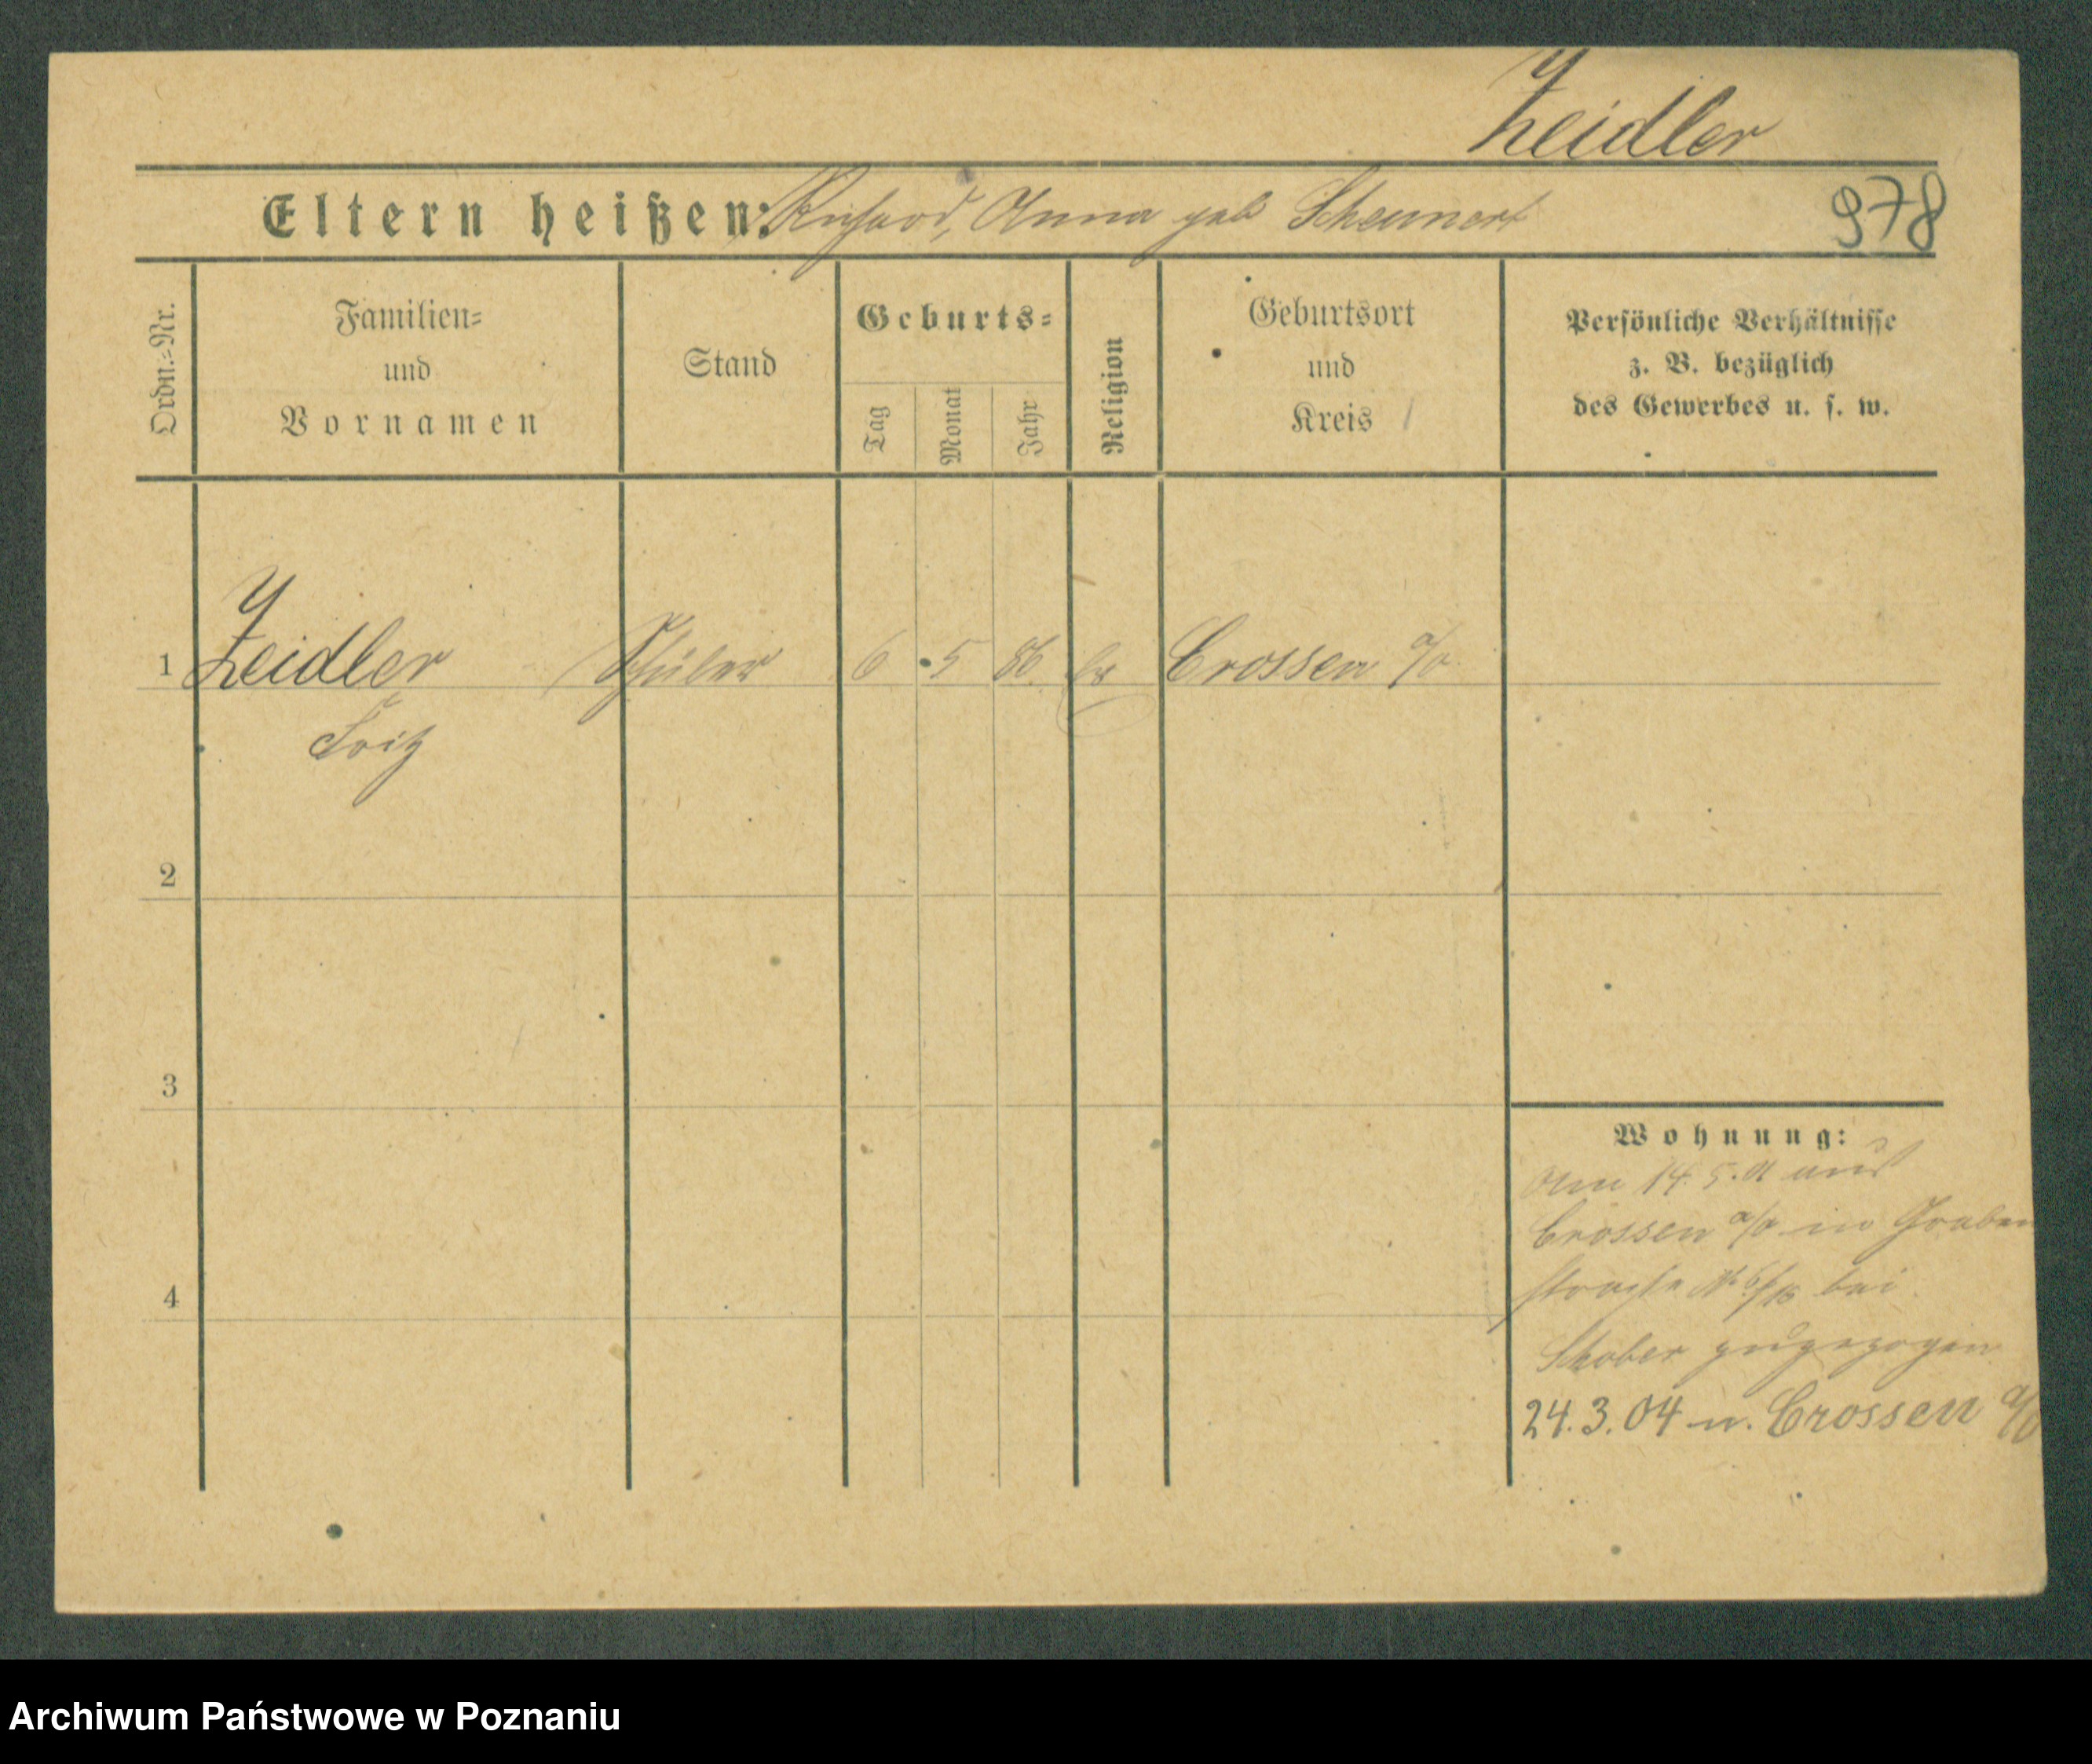 Zeidler
Eltern heißen: Richard, Anna geb Scheunert
978
Ordn.=Nr.
Familien=
und
Vornamen
Stand
Geburts=
Tag
Monat
Jahr
Religion
Geburtsort
und
Kreis
Persönliche Verhältnisse
z. B. bezüglich
des Gewerbes u. s. w.
1 Zeidler Schüler 6 5 86 Crossen a/o
Fritz
2
3
4
Wohnung:
Am 14. 5. 01 aus
Crossen a/o in Graben
straße № bei
Schober zugezogen
24. 3. 04 n. Crossen a/o
Archiwum Państwowe w Poznaniu